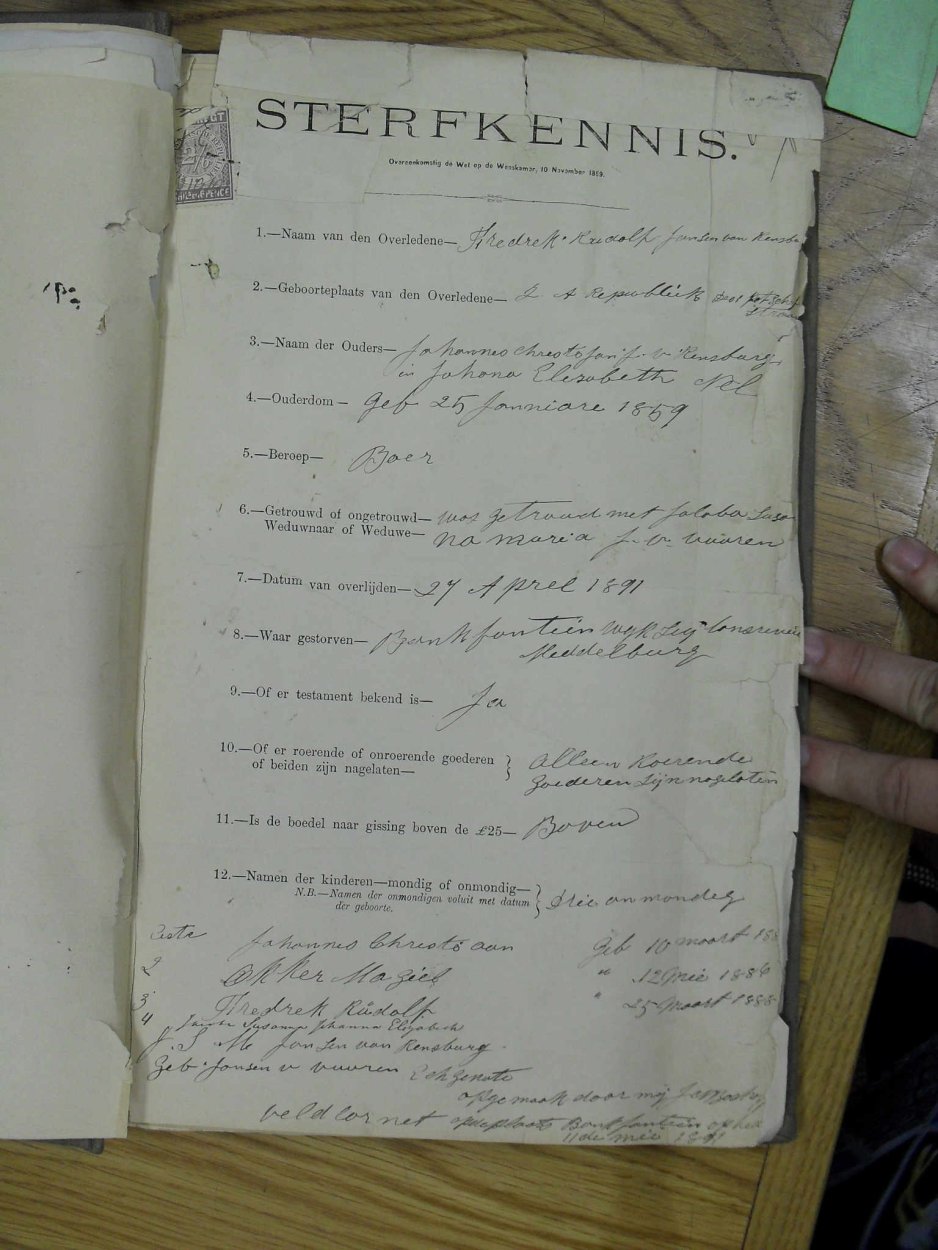 STERFKENNIS.
Overeenkomstig de Wet op de Weeskamer, 10 November 1859.
1.—Naam van den Overledene— Fredrek Rudolf Jansen van Rensbu
2.—Geboorteplaats van den Overledene— Z A Republiek
3.—Naam der Ouders— Johannes Christofan J. v. Rensburg
in Johana Elesabeth Nel
4.—Ouderdom— Geb 25 Janniare 1859
5.—Beroep— Boer
6.—Getrouwd of ongetrouwd— was getroud met Jakoba Susa
Weduwnaar of Weduwe— na maria J. v. vuuren
7.—Datum van overlijden— 27 Aprel 1891
8.—Waar gestorven— Bankfontein Wyk
Meddelburg
9.—Of er testament bekend is— Ja
10.—Of er roerende of onroerende goederen Alleen Roerende
of beiden zijn nagelaten— goederen Zijn nagelaten
11.—Is de boedel naar gissing boven de £25— Boven
12.—Namen der kinderen—mondig of onmondig—
N.B.—Namen der onmondigen voluit met datum Drie onmondeg
der geboorte.
Johannes Christofaan Geb 10 maart 188
2 Okker Magiel " 12 Mie 1886
3 Fredrek Rudolf " 25 Maart 1888
4 Susanna Johanna Elizabeth
J. S. M. Jansen van Rensburg
Geb. Jansen v vuuren Echgenote
opgemaak door mij
veldcornet op de plaats Bankfontein op hed
11de mie 1891